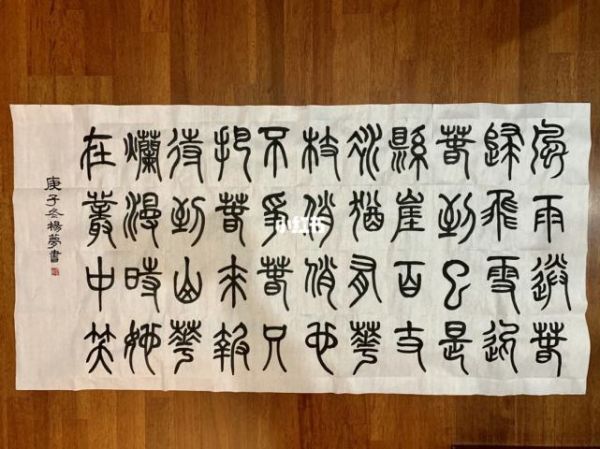 風雨送春
歸飛雪迎
春到已是
縣崖百丈
冰猶有華
枝俏俏也
不爭春只
把春來報
待到山華
爛漫時她
在叢中笑
庚子冬楊夢書
小红书